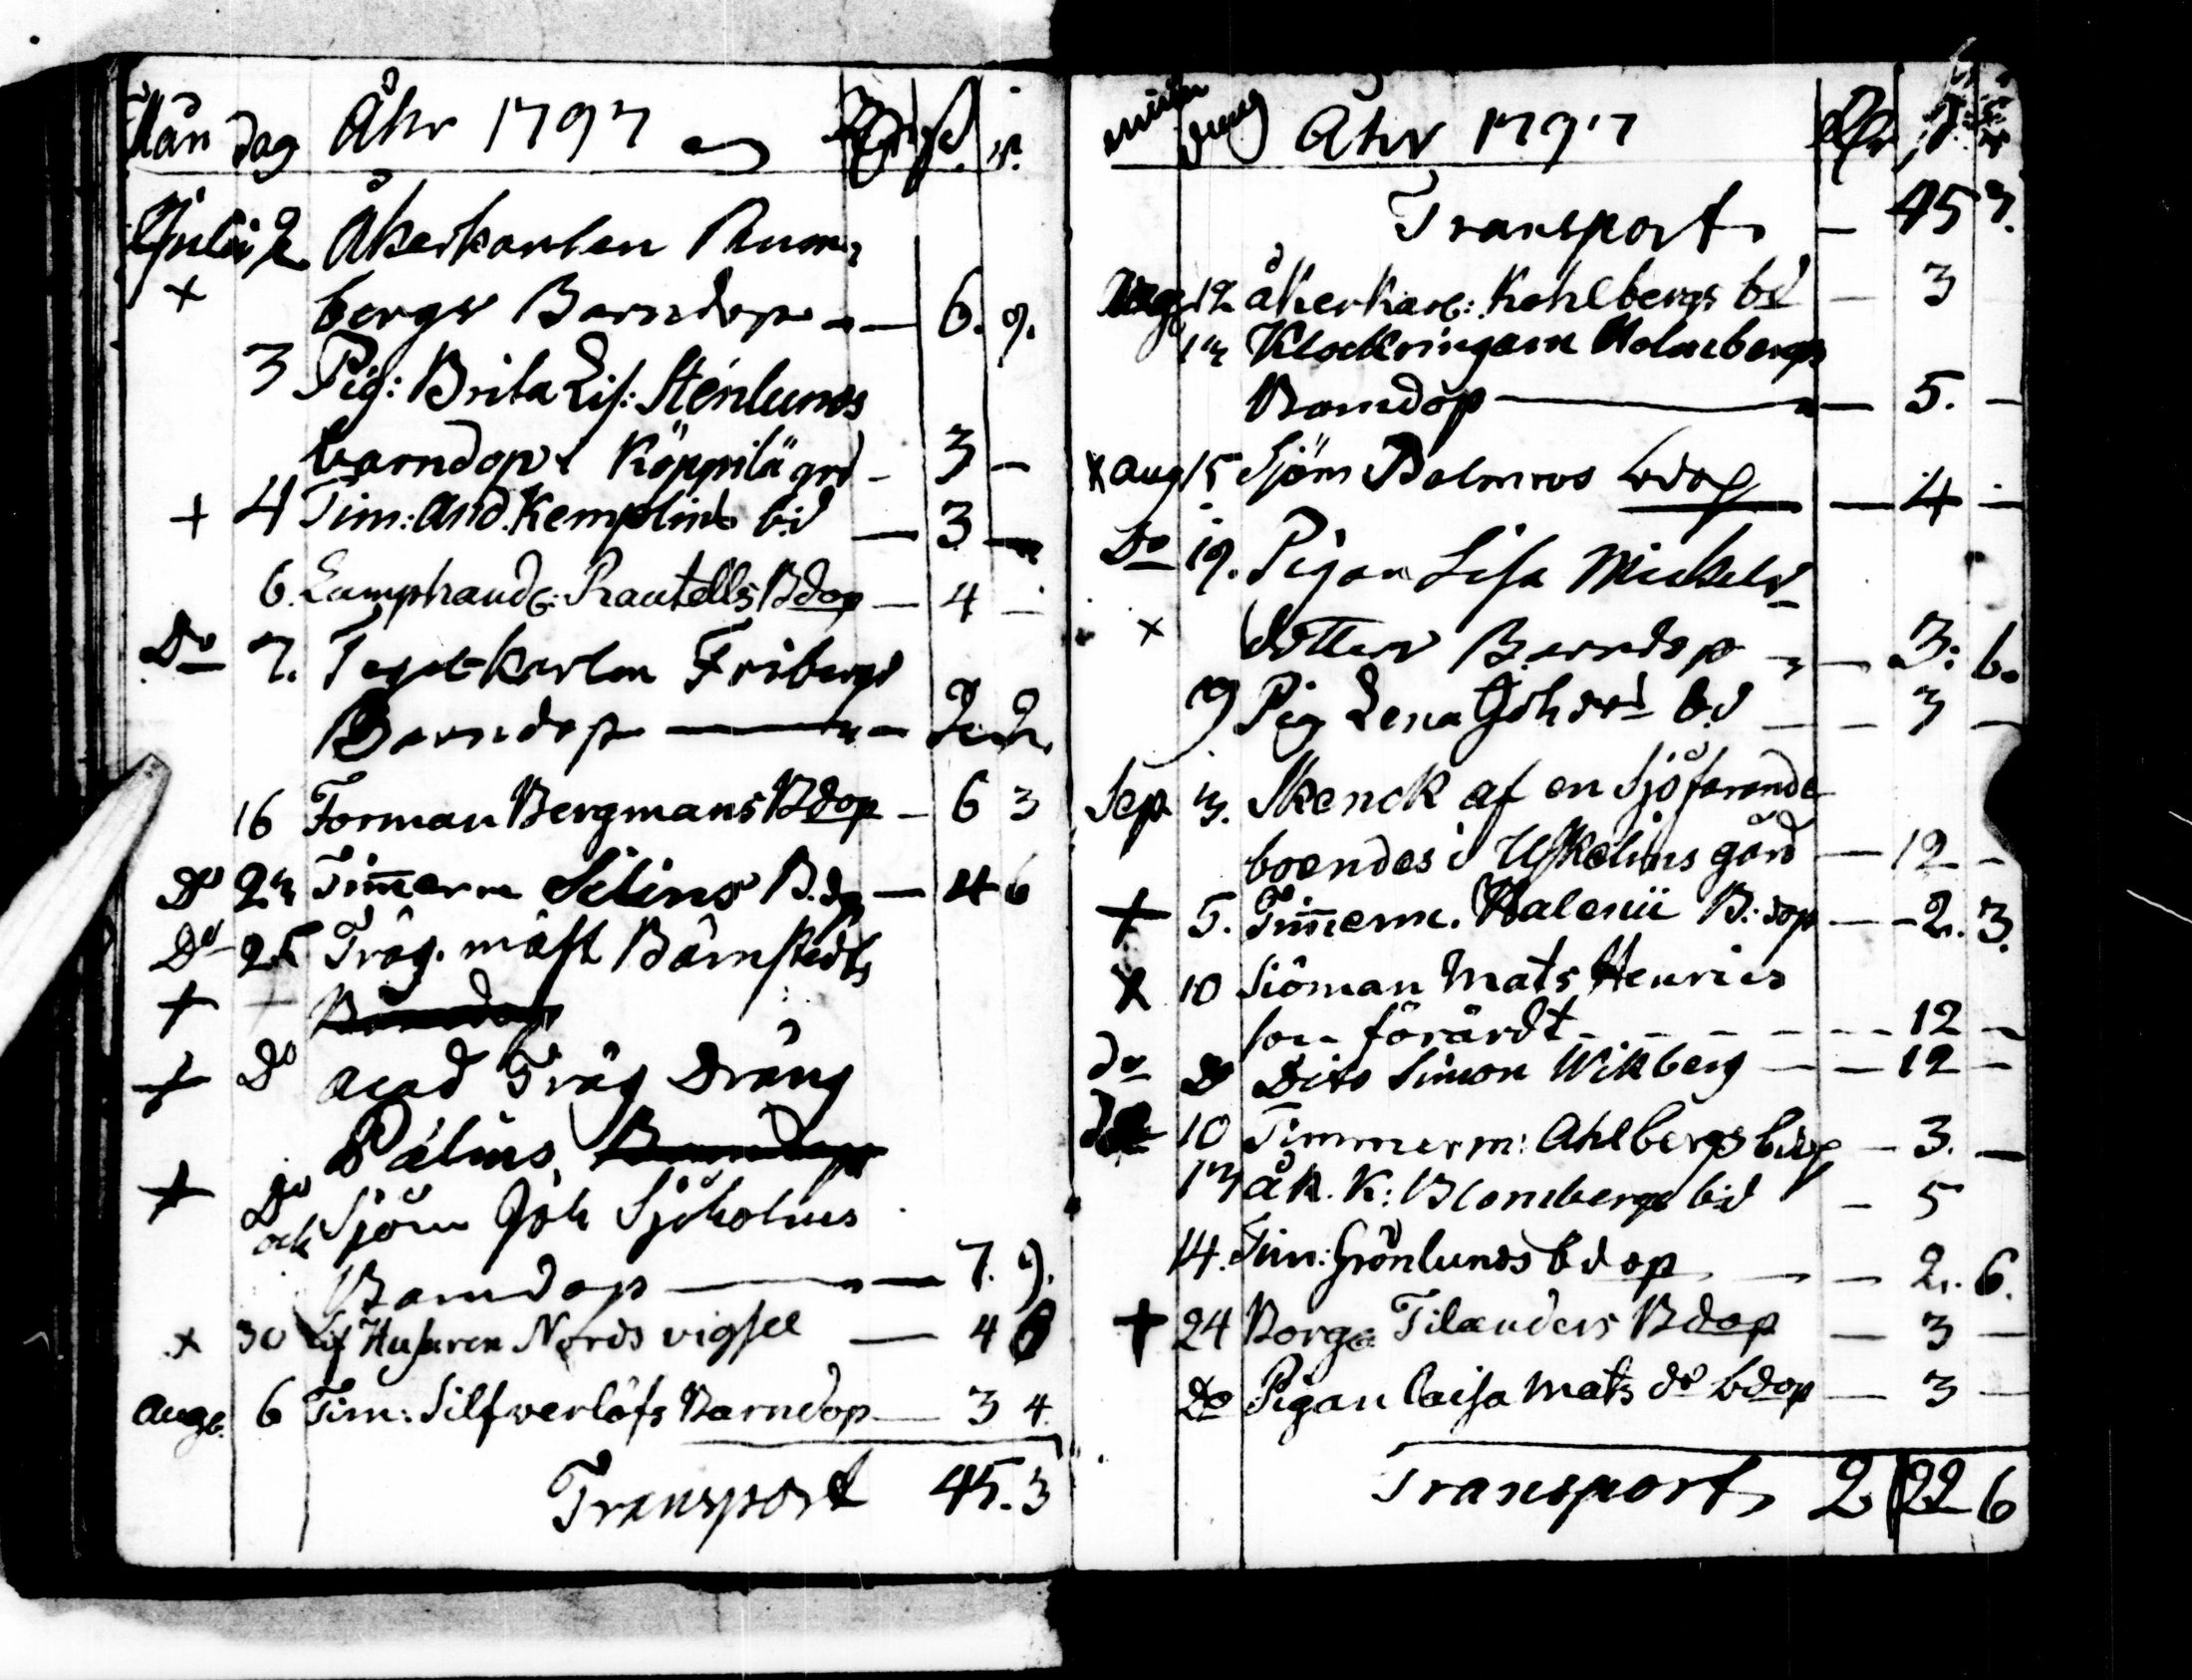 Mån dag Åhr 1797
Julii 2 Åkerkarlen Rum,
+ bergs Barndop — 6. 9.
3 Pig: Brita Lis: Stenlunds
barndop i Köppilä grd - 3 -
+ 4 Tim: And. Kemplins bd — 3 —
6. Lumphandl: Rautells Bdop — 4 -
Do 7. Tegelkarlen Fribergs
Barndop — 2. 2.
16 Forman Bergmans Bdop - 6 3
Do 23 Timerm Selins B.dp — 4 6
Do 25 Träg. mäst Bärnstedts
+ - Barndop
+ Do Acad Träg Dräng
Palins, Barndop
+ Do och Sjöm Joh Sjöholms
Barndop — 7. 9.
x 30 Lif Husaren Nords vigsel — 4 6
Aug. 6 Tim: Silfverlöfs Barndop — 3 4.
Transport 45. 3
mån dag Åhr 1797
Transport — 45 3.
Aug 12 åkerkarl: Kahlbergs bd — 3
13 Klockringarn Holmbergs
Barndop — 5. —
x aug 15 Sjöm Balmros bdop — 4 —
Do 19. Pigan Lisa Mickels-
x dotters Barndop — 3: 6.
9 Pig Lena Johsd bd — 3 —
Sep 3. Skenck af en Sjöfarande
boendes i Uskelins gård — 12 -
+ 5. Timerm. Walenii B:dop — 2. 3.
x 10 Siöman Mats Henrics
son förärdt - - - - 12 -
do Do Dito Simon Wikberg — 12 -
10 Timmerm: Ahlbergs bdop — 3. —
13 åk. K: Blombergs bd - 5
14. Tim: Grönlunds bdop — 2. 6.
+ 24 Borg. Tilanders Bdop — 3 —
Do Pigan Caisa Mats do bdop — 3 —
Transport 2 22 6